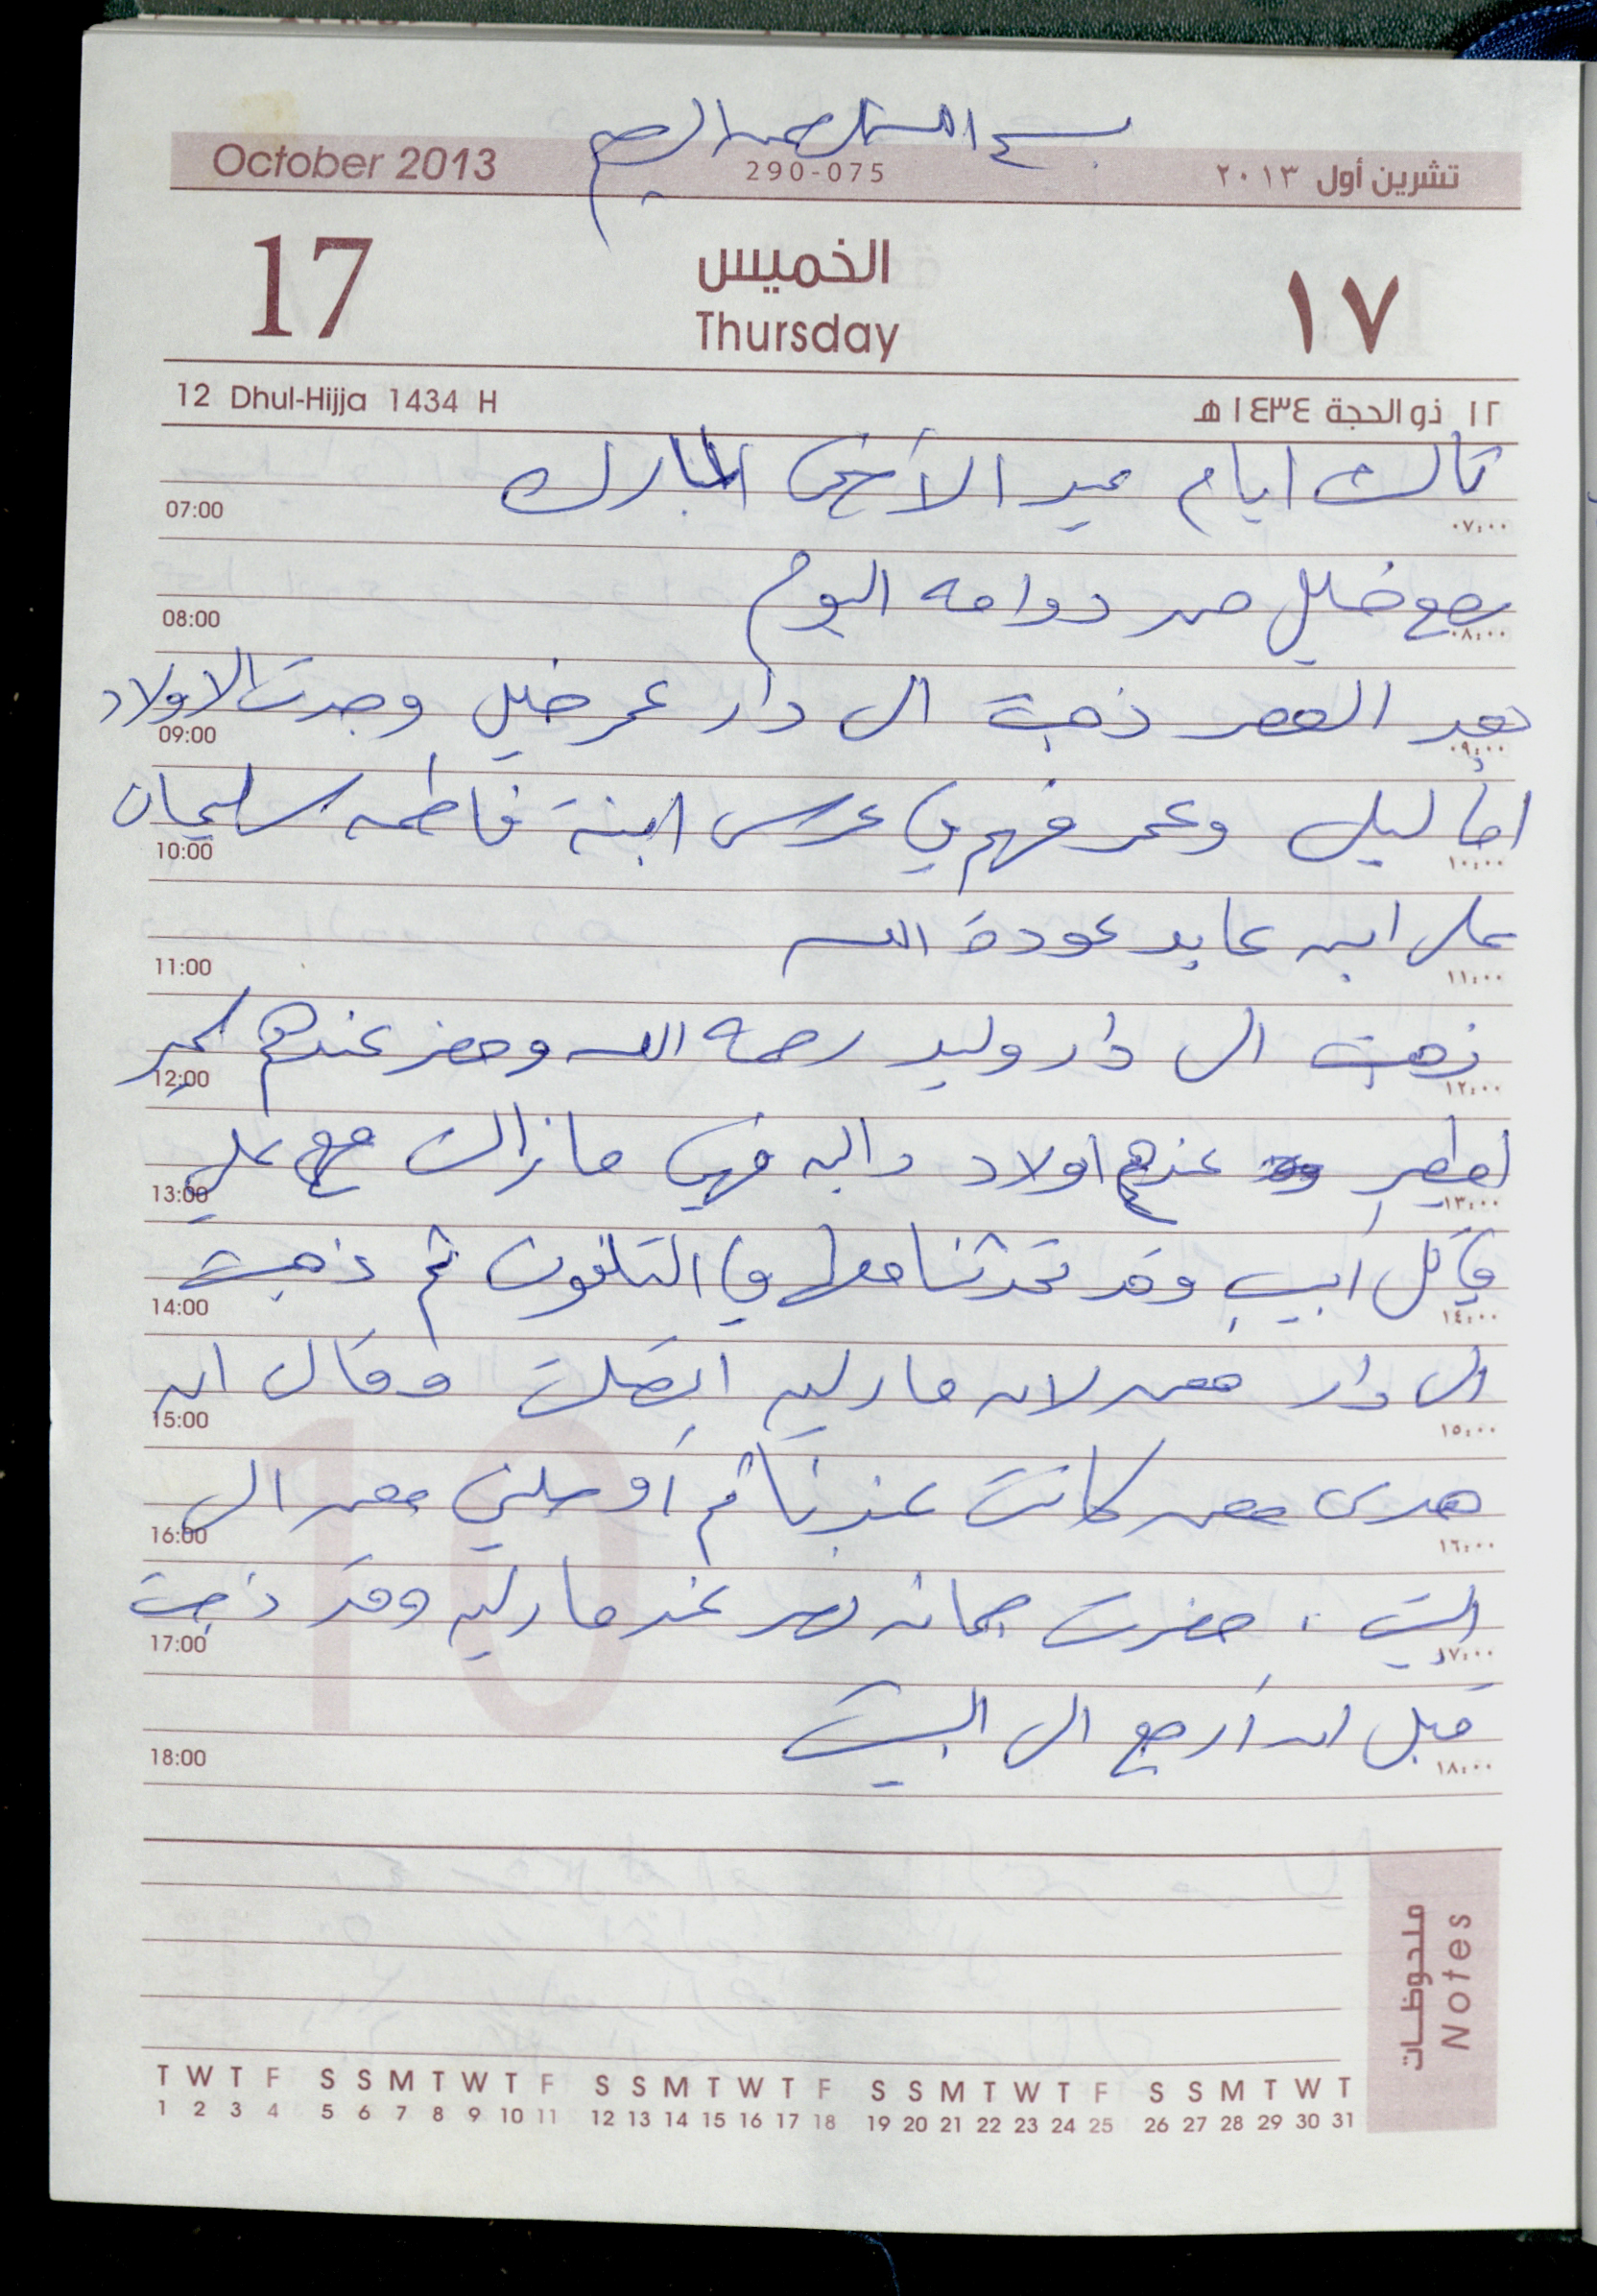 بسم الله الرحمن الرحيم
October 2013 290-075 تشرين أول ٢٠١٣
17 الخميس ١٧
Thursday
12 Dhul-Hijja 1434 H ١٢ ذو الحجة ١٤٣٤ هـ
ثالث ايام عيد الأضحى المبارك
07:00 ٠٧:٠٠
رجع خليل من دوامه اليوم
08:00 ٠٨:٠٠
بعد العصر ذهبت الى دار عمر خليل وجدت الاولاد
09:00 ٠٩:٠٠
أما ليلى وعمر فهم في عرس ابنة فاطمه سليمان
10:00 ١٠:٠٠
على ابن عايد عودة الله
11:00 ١١:٠٠
ذهبت الى دار وليد رحمه الله وحضر عندهم
12:00 ١٢:٠٠
عندهم اولاد داليه فهي مازالت مع علي
13:00 ١٣:٠٠
في تل أبيب وقد تحدثنا معها في التلفون ثم ذهبت
14:00 ١٤:٠٠
الى دار معن لان مارلين اتصلت وقال ان
15:00 ١٥:٠٠
هدى معن كانت عندنا ثم أوصلني معن الى
16:00 ١٦:٠٠
البيت . حضرت جمانه نصر عند مارلين وقد ذهبت
17:00 ١٧:٠٠
قبل ان أرجع الى البيت
18:00 ١٨:٠٠
ملحوظات
Notes
T W T F S S M T W T F S S M T W T F S S M T W T F S S M T W T
1 2 3 4 5 6 7 8 9 10 11 12 13 14 15 16 17 18 19 20 21 22 23 24 25 26 27 28 29 30 31